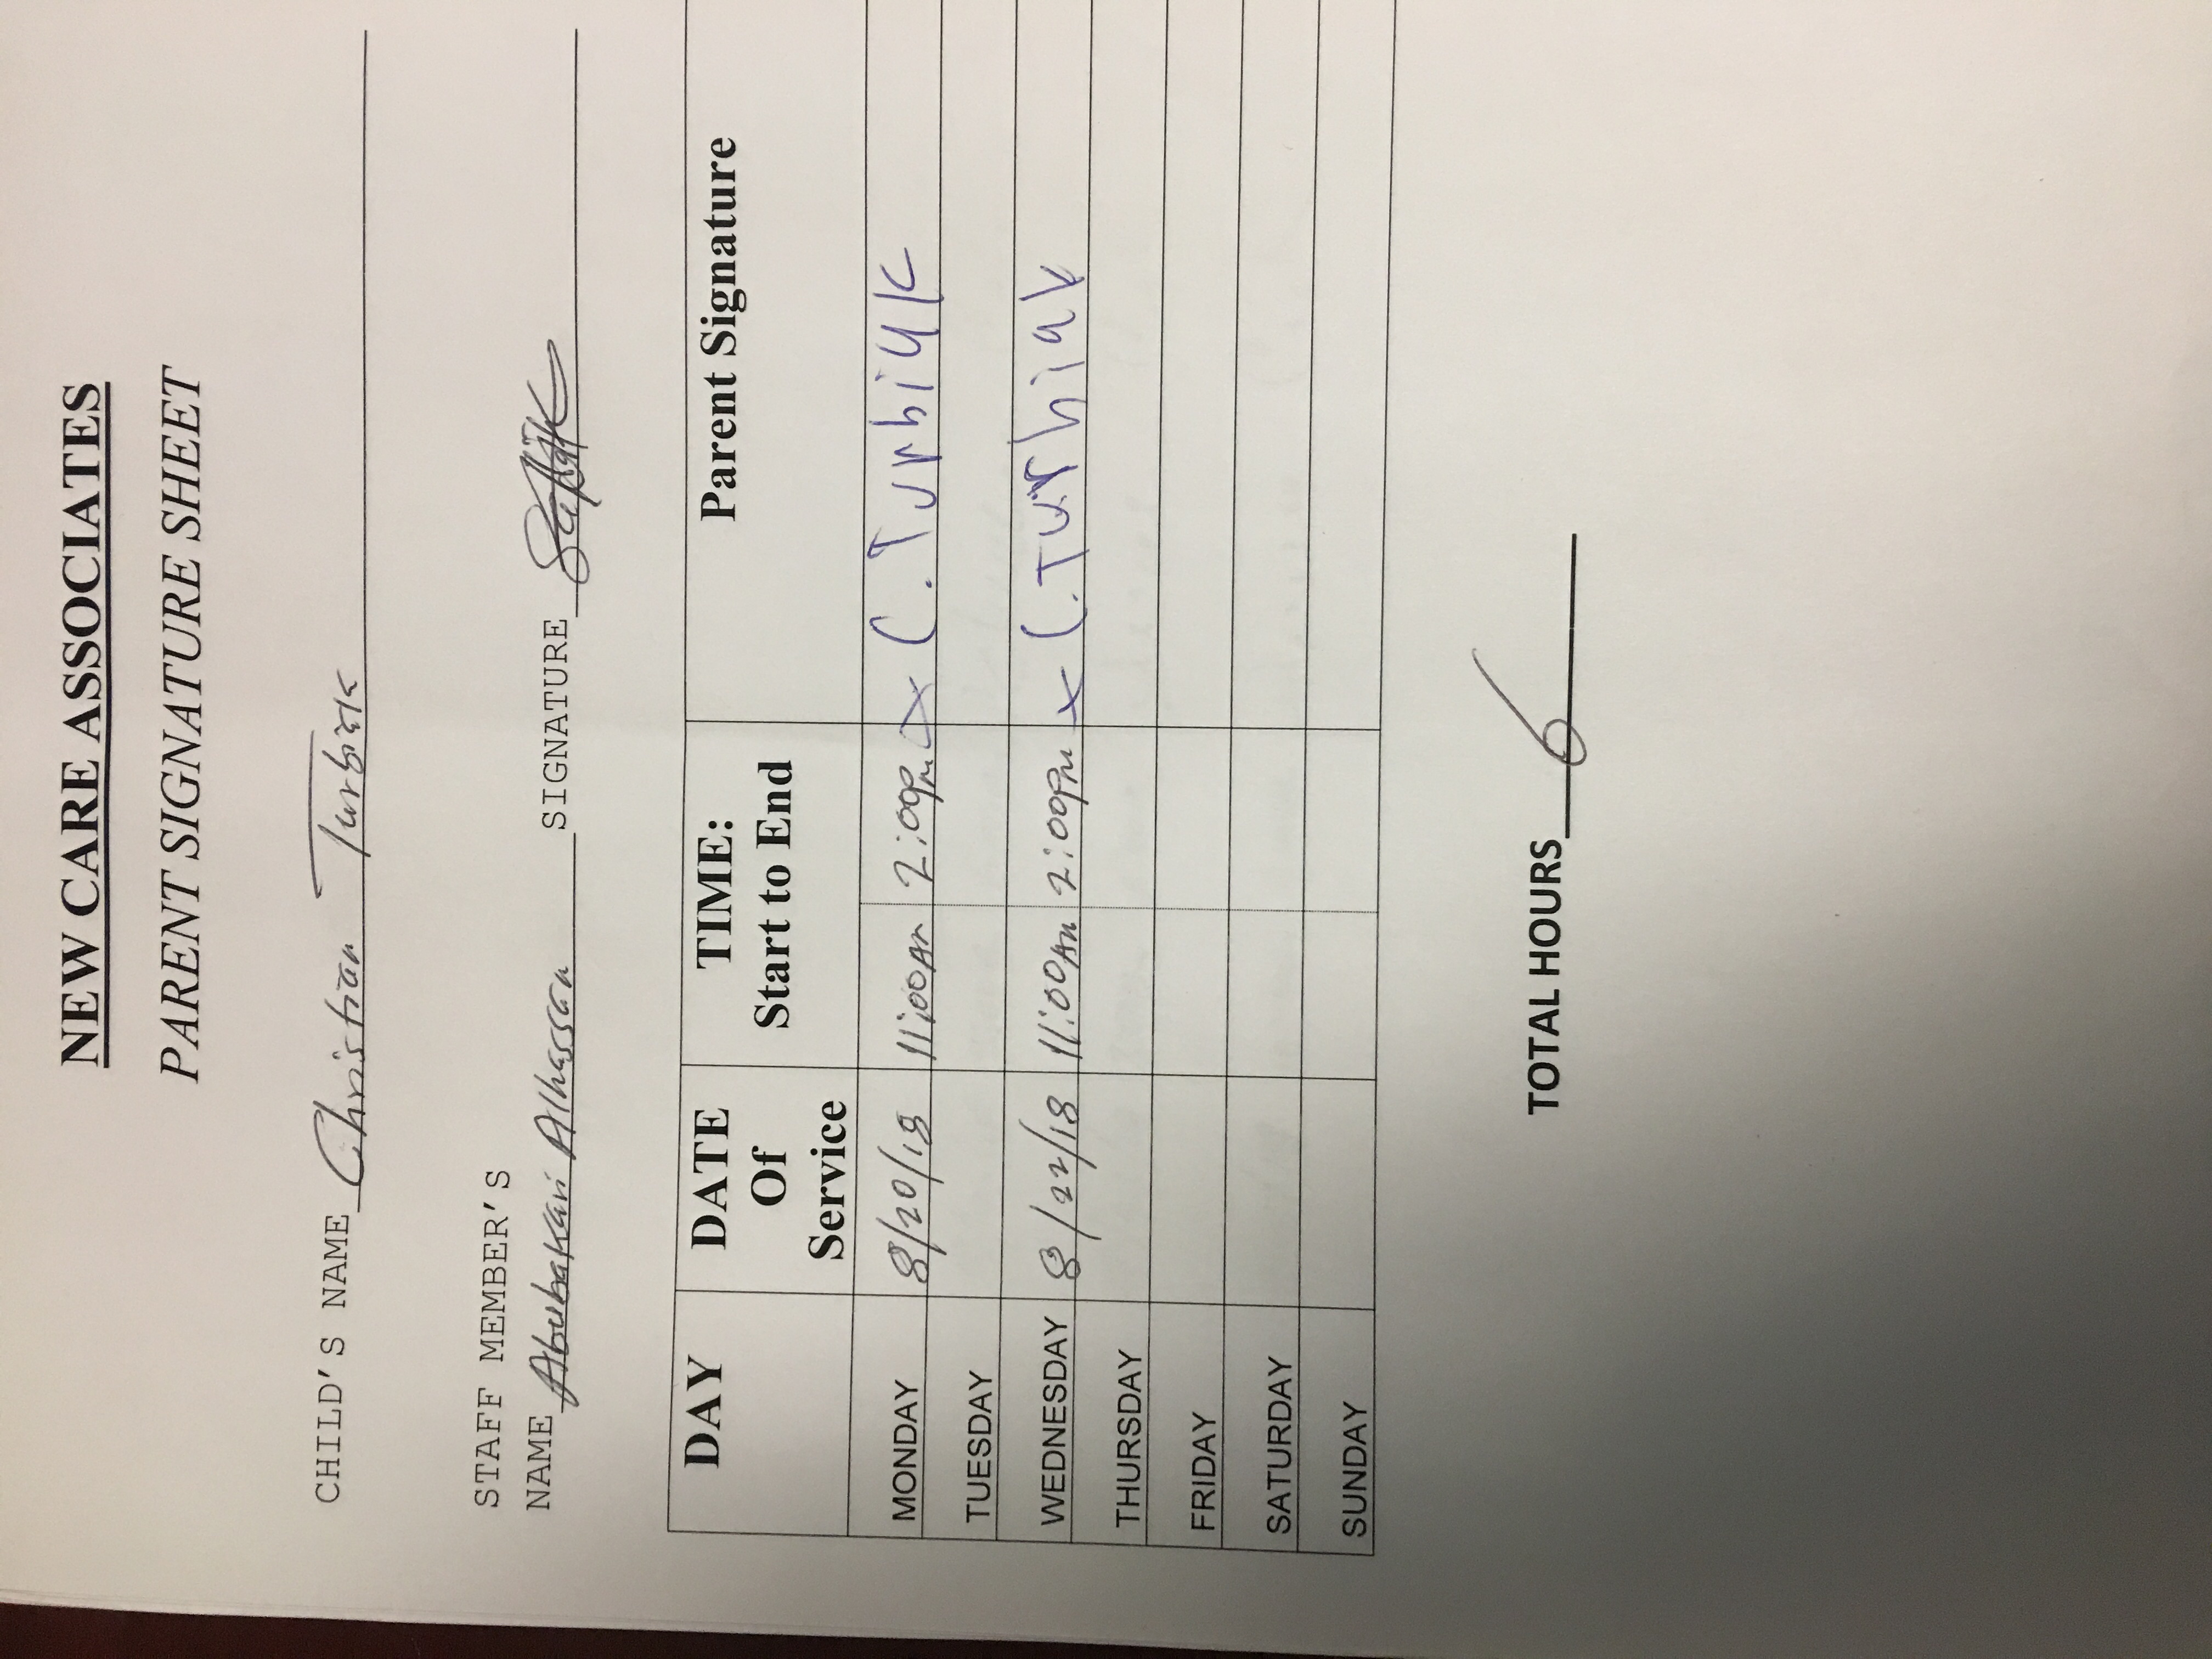 NEW CARE ASSOCIATES
PARENT SIGNATURE SHEET
CHILD'S NAME Christian Turbiak
STAFF MEMBER'S
NAME Abubakari Alhassan SIGNATURE
DAY DATE Of Service TIME: Start to End Parent Signature
MONDAY 8/20/18 11:00AM 2:00PM x C. Turbiak
TUESDAY
WEDNESDAY 8/22/18 11:00AM 2:00PM x C. Turbiak
THURSDAY
FRIDAY
SATURDAY
SUNDAY
TOTAL HOURS 6